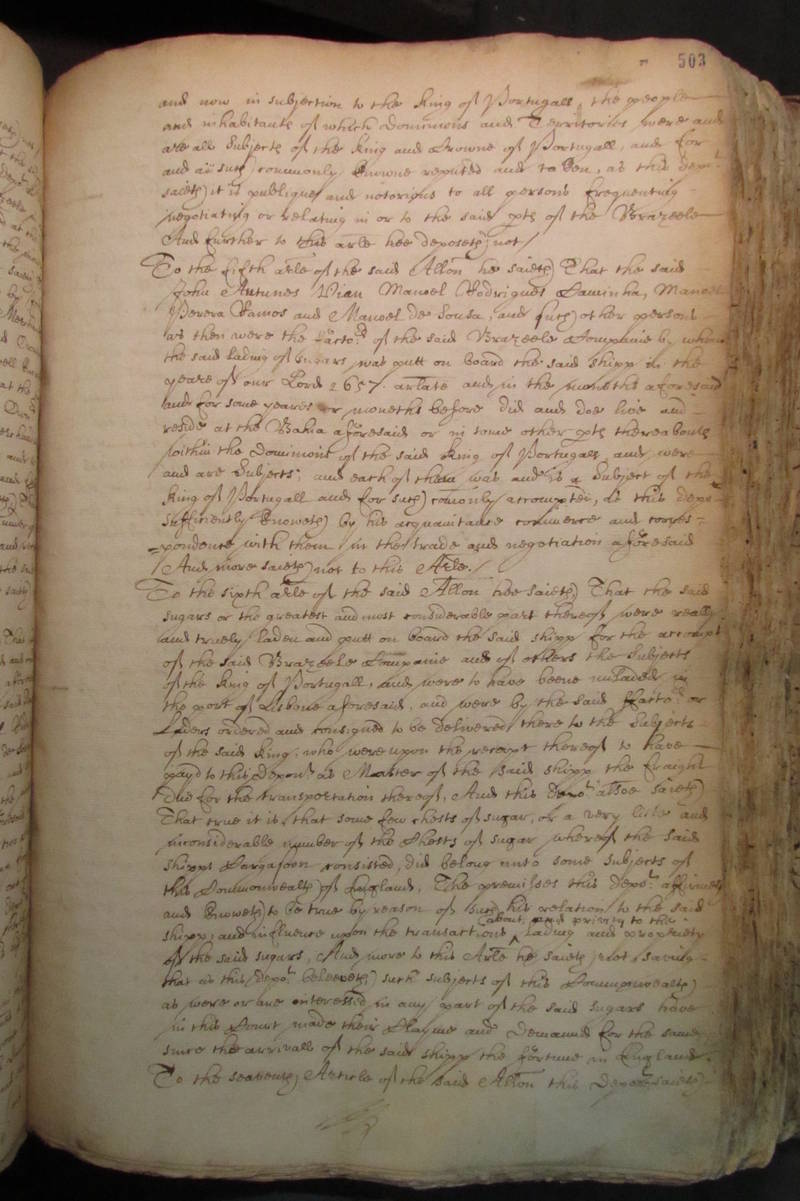 503
and now in subjection to the King of Portugall, the people
and inhabitants of which Dominions and Territories were and
are all Subjects of the King and Crowne of Portugall, and for
and as such commonly knowne reputed and taken, as this depo:t
saieth, it is publique and notorious to all persons frequenting
negotiating or relating in or to the said pts of the Brazeele
And further to this arle hee deposeth not/
To the fifth arle of the said Allon he saieth That the said
John Antunes Vian Manoel Rodrigues Caminha, Manoel
Perera Ramos and Manoel de Sousa, and such other persons
as then were the facto:rs of the said Brazeele Companie by whom
the said lading of sugars was putt on board the said shipp in the
yeare of our Lord 1657 arlate and in the moneths aforesaid
and for some yeares or moneths before did and doe live and
reside at the Bahia aforesaid or in some other pts thereabouts
within the Dominions of the said King of Portugall, and were
and are Subjects, and each of them was and is a Subject of the
King of Portugall and for such comonly accompted, as this depo:t
sufficiently knoweth by his acquaintance commerce and corres=
=pondence with them in the trade and negotiation aforesaid
And more saieth not to this Arle./
To the sixth arle of the said Allon hee saieth That the said
sugars or the greatest and most considerable part thereof were really
and truely laden and putt on board the said shipp for the accompt
of the said Brazeele Companie and of others the Subjects
of the King of Portugall, and were to have beene unladed in
the port of Lisbone aforesaid, and were by the said ffacto:rs or
Laders ordered and consigned to be delivered there to the Subjects
of the said King, who were upon the receipt thereof to have
payd to this depon:t as Master of the said shipp the fraight
due for the transportation thereof, And this depo:t alsoe saieth
That true it is, that some few chests of sugar, or a very litle and
inconsiderable number of the Chests of sugar whereof the said
shipps Cargasoon consisted, did belong unto some subjects of
this Commonwealth of England. The premisses this depo:t affirmeth
and knoweth to be true by reason of such his relation to the said
about, and privity to the
shipp, and influence upon the transactions ^ lading and propriety
of the said sugars, And more to this Arle he saieth not, saving
that as this depo:t beleeveth such subjects of this Commonwealth
as were or are interessed in any part of the said sugars have
in this Court made their Clayme and Demannd for the same
since the arrivall of the said shipp the fortune in England.
To the seaventh Article of the said Allon this Depo:t saieth